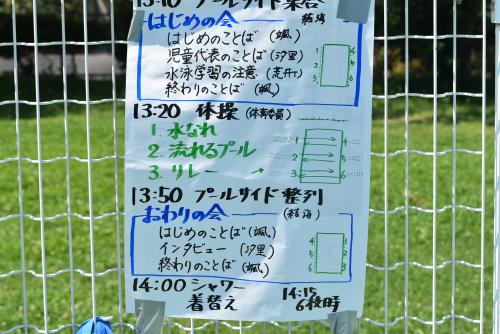 13:10 プールサイド集合
はじめの会 (結海)
はじめのことば (颯)
児童代表のことば (汐里)
水泳学習の注意 (荒井T)
終わりのことば (颯)
1 4
2 5
3 6
13:20 体操 (体育委員)
1. 水なれ
2. 流れるプール
3. リレー →
1 4
2 5
3 6
13:50 プールサイド整列
おわりの会 (結海)
はじめのことば (颯)
インタビュー (汐里)
終わりのことば (颯)
4 1
5 2
6 3
14:00 シャワー
着替え
14:15
6校時